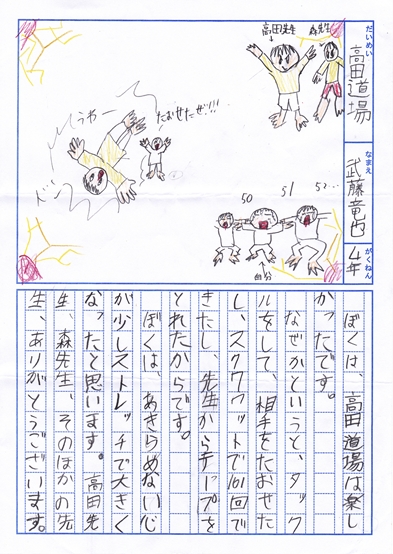 だいめい
高田道場
なまえ
武藤竜也
がくねん
4年
高田先生
森先生
うわー
たおせたぜ!!!
ドン
50 51 52…
自分
ぼくは、高田道場は楽し
かったです。
なぜかというと、タック
ルをして、相手をたおせた
し、スクワウットで101回で
きたし、先生からテープを
とれたからです。
ぼくは、あきらめない心
が少しストレッチで大きく
なったと思います。高田先
生、森先生、そのほかの先
生、ありがとうございます。